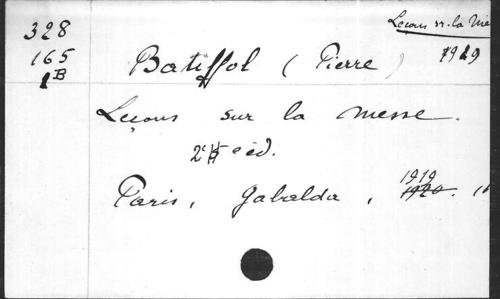 328
165
1B
Leçons sr. la Me
1919
Batiffol ( Pierre )
Leçons sur la messe.
2e éd.
Paris, Gabalda, 1919
1920.